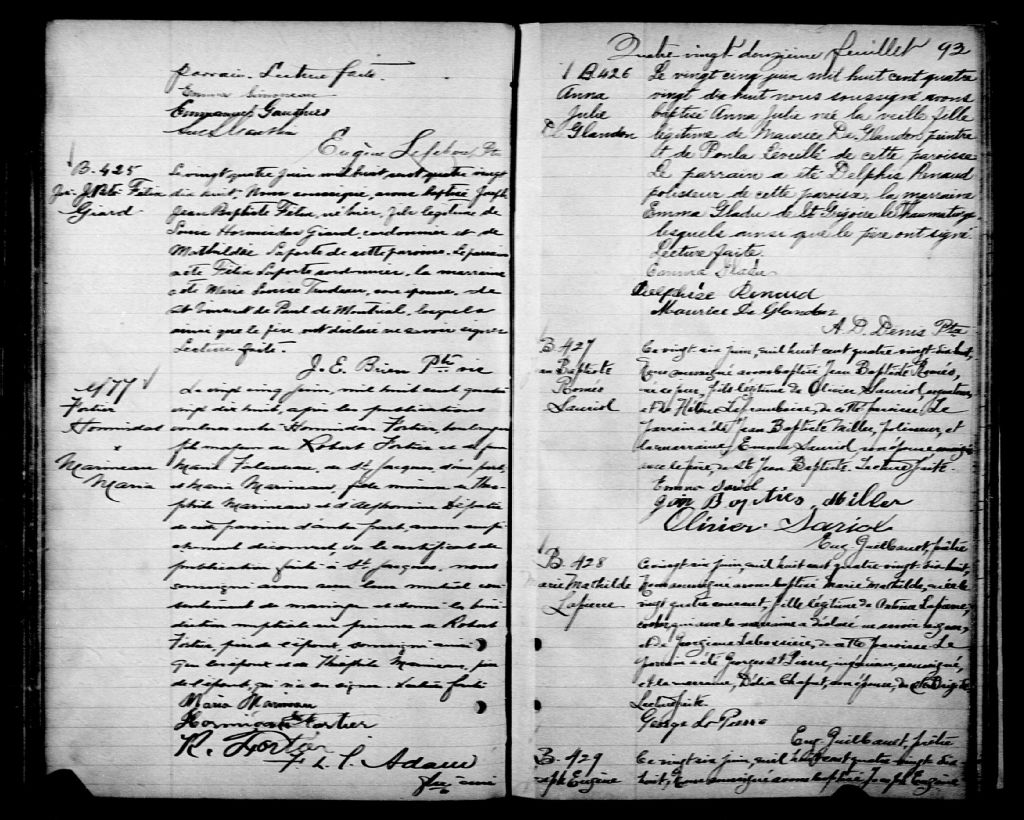 parrain. Lecture faite.
Emma Simoneau
Emmanuel Gauthier
Eugène Lefebvre Ptre
B. 425
Jos. J. Bte Félix
Giard
Le vingt quatre juin mil huit cent quatre vingt
dix huit, Nous soussigné, avons baptisé Joseph
Jean Baptiste Félix, né hier, fils légitime de
Louis Hormidas Giard, cordonnier et de
Mathildée Laporte de cette paroisse. Le parrain
a été Félix Laporte cordonnier, la marraine
a été Marie Louise Trudeau, son épouse, de
St Vincent de Paul de Montréal, lesquels
ainsi que le père ont déclaré ne savoir signer
Lecture faite.
J. E. Brien Ptre vic
M 77
Fortier
Hormidas
x
Marineau
Maria
Le vingt cinq juin, mil huit cent quatre
vingt dix huit, après les publications
entre Hormidas Fortier, boulanger
fils majeur de Robert Fortier et de
Marie de St. Jacques d'une part,
et Maria Marineau, fille mineure de Théo-
phile Marineau et d'Alphonsine
de cette paroisse d'autre part, aucun empê-
chement découvert, vu le certificat de
publication faite à St. Jacques, nous
soussigné avons reçu leur mutuel con-
sentement de mariage et donné la béné-
diction nuptiale en présence de Robert
Fortier, père de l'époux, soussigné ainsi
que les époux et de Théophile Marineau, père
de l'épouse, qui n'a su signer. Lecture faite
Maria Marineau
Hormidas Fortier
R. Fortier
F. L. T. Adam
Ptre curé
Quatre vingt douzième feuillet 92
B. 426
Anna
Julie
De Glandon
Le vingt cinq juin mil huit cent quatre
vingt dix huit nous soussigné avons
baptisé Anna Julie née la veille fille
légitime de Maurice De Glandon peintre
et de Paula Léveillé de cette paroisse
Le parrain a été Delphis Renaud
polisseur de cette paroisse, la marraine
Emma Gladu de St Grégoire le Thaumaturge
lesquels ainsi que le père ont signé.
Lecture faite.
Emma Gladu
Delphise Renaud
Maurice De Glandon
A. D. Denis Ptre
B. 427
Jean Baptiste
Roméo
Sauriol
Ce vingt six juin, mil huit cent quatre vingt dix huit,
Nous soussigné avons baptisé Jean Baptiste Roméo,
né ce jour, fils légitime de Olivier Sauriol,
et de Hélène Laframboise, de cette paroisse. Le
parrain a été Jean Baptiste Miller, polisseur, et
la marraine, Emma Sauriol, son épouse, soussignés
avec le père, de St Jean Baptiste. Lecture faite.
Emma Sariol
Jan Bopties Miller
Olivier Sariol
Eug. Guilbault, prêtre
B. 428
Marie Mathilde
Lapierre
Ce vingt six juin, mil huit cent quatre vingt dix huit,
Nous soussigné avons baptisé Marie Mathilde, née le
vingt quatre courant, fille légitime de Patrice Lapierre,
qui avec la marraine a déclaré ne savoir signer,
et de Georgiana Labossière, de cette paroisse Le
parrain a été Georges St Pierre, soussigné,
et la marraine, Délia Chaput, son épouse, de Ste Brigide
Lecture faite.
George St Pierre
Eug. Guilbault, prêtre
B. 429
Joseph Eugène
Ce vingt six juin, mil huit cent quatre vingt dix-
huit, Nous soussigné avons baptisé Joseph Eugène